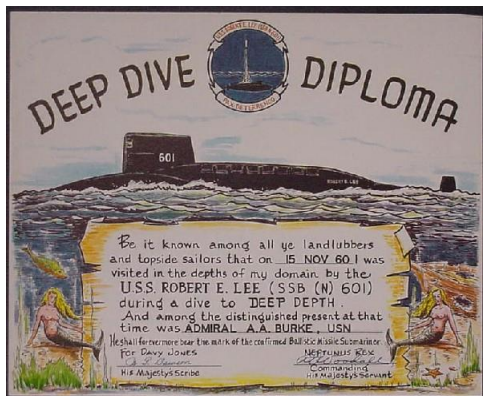 U.S.S. ROBERT E. LEE (SSB(N) 601)
DEEP DIVE DIPLOMA
601
ROBERT E. LEE
Be it known among all ye landlubbers
and topside sailors that on 15 NOV 60 I was
visited in the depths of my domain by the
U.S.S. ROBERT E. LEE (SSB (N) 601)
during a dive to DEEP DEPTH.
And among the distinguished present at that
time was ADMIRAL A.A. BURKE, USN
He shall forevermore bear the mark of the confirmed Ballistic Missile Submariner.
FOR DAVY JONES
NEPTUNUS REX
Commanding
His Majesty's Scribe
His Majesty's Servant